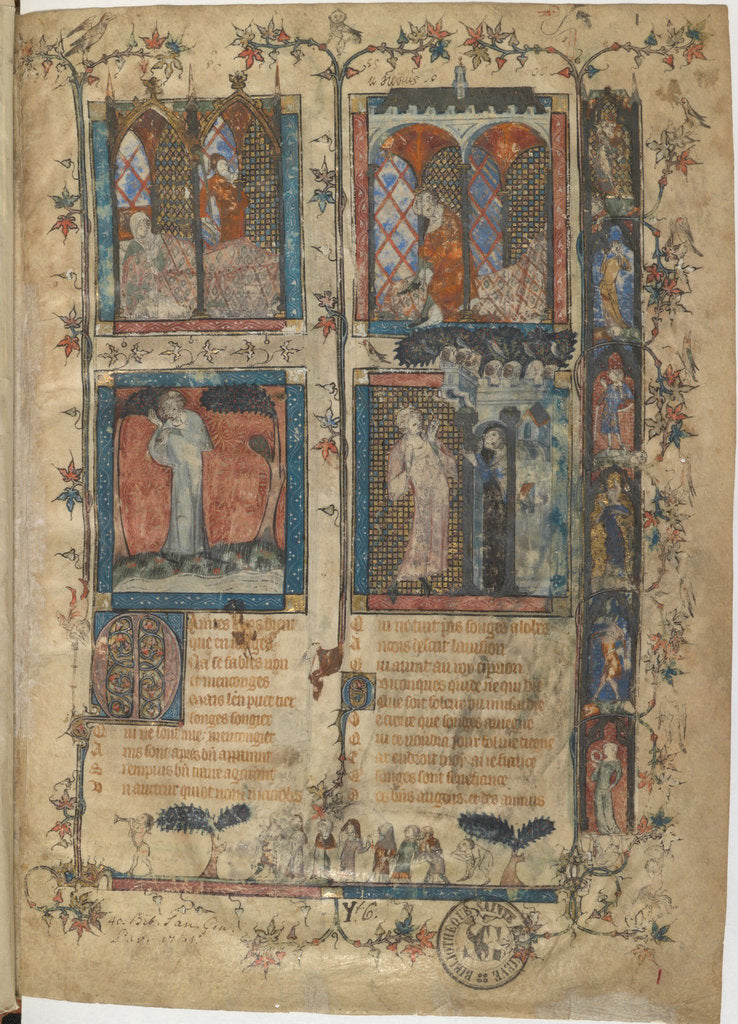 Maintes gens dient
que en songes
Na se fables non
et menconges
Mais len puet tiex
songes songier
Qui ne sont mie mencongier
Ains sont apres bn apparant
Si en puis bn traire a garant
Un aucteur qui ot non macrobes
Qui ne tint pas songes a lobes
Ancois descrit la vision
Qui avint au roy cipion
Quiconques cuide ne qui die
Que soit foleur ou musardie
De croire que songes aviegne
Qui ce voudra pour fol me tiegne
Car endroit moy ai ie fiance
Que songes soit senefiance
Des biens as gens et des anuis
Yf6.
BIBLIOTHEQUE SAINTE GENEVIEVE
SG
1